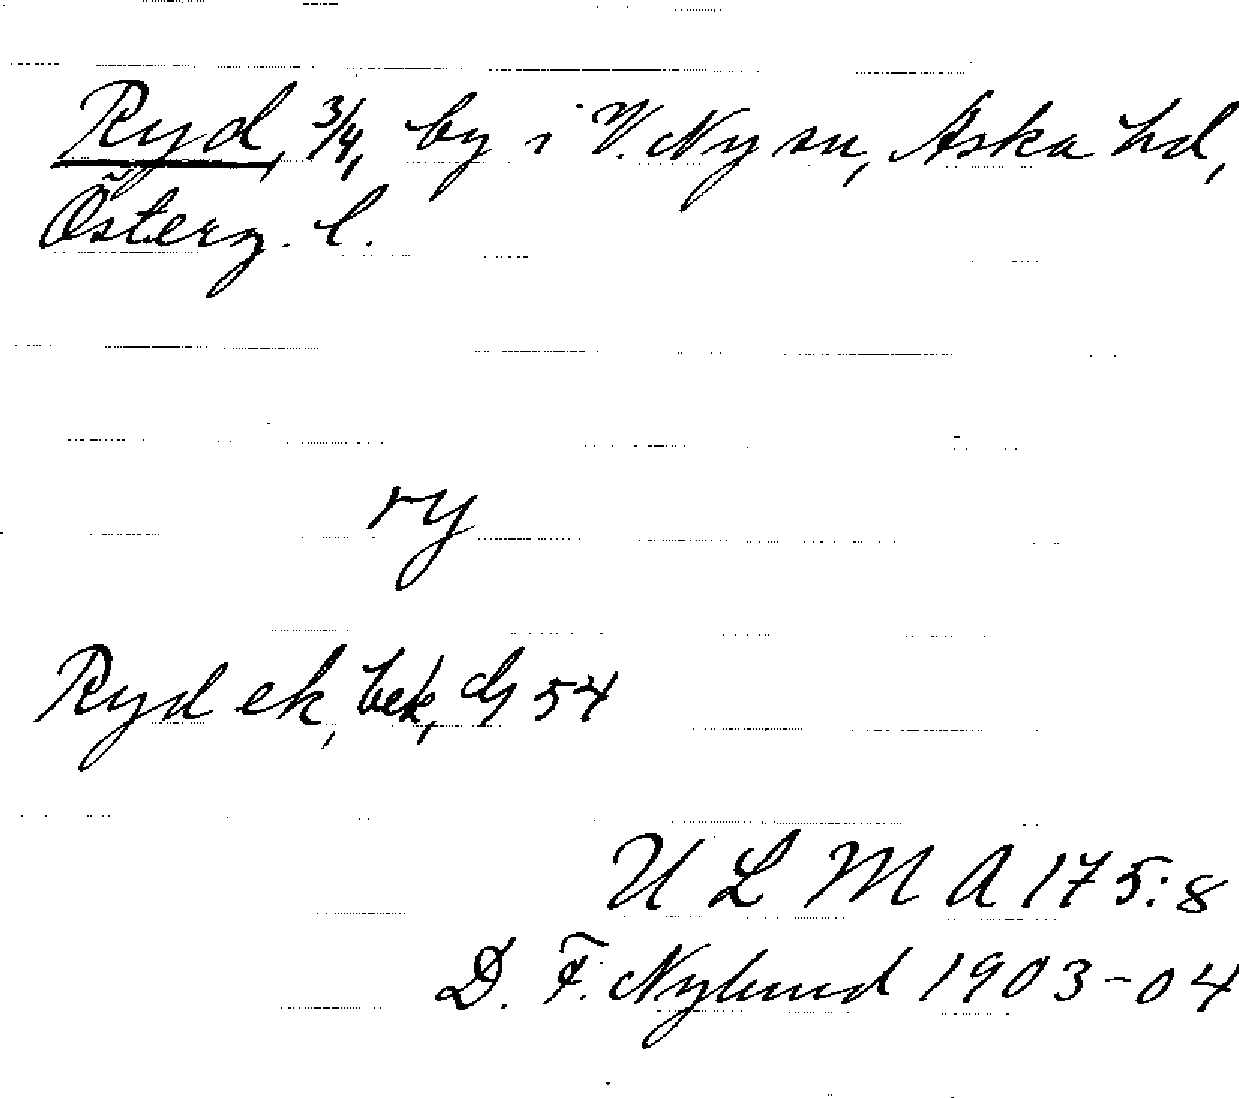 Ryd, 3/4, by i V. Ny sn, Aska hd,
Österg. l.
ry
Ryd ek, bek, dg 54
U L M A 175:8
D. F. Nylund 1903-04